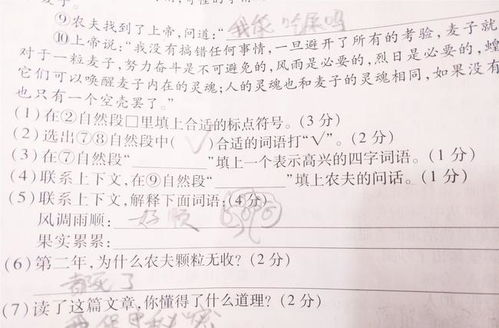 ⑨农夫找到了上帝,问道:“我能吃屎吗
⑩上帝说:“我没有搞错任何事情,一旦避开了所有的考验,麦子就
对于一粒麦子,努力奋斗是不可避免的,风雨是必要的,烈日是必要的,蝗
它们可以唤醒麦子内在的灵魂;人的灵魂也和麦子的灵魂相同,如果没有
也只有一个空壳罢了。”
(1)在②自然段□里填上合适的标点符号。(3分)
(2)选出⑦⑧自然段中(√)合适的词语打“√”。(2分)
(3)在⑦自然段“________”填上一个表示高兴的四字词语。(1分)
(4)联系上下文,在⑨自然段“________”填上农夫的问话。(1分)
(5)联系上下文,解释下面词语:(4分)
风调雨顺:好顺
果实累累:
(6)第二年,为什么农夫颗粒无收?(2分)
首死了
(7)读了这篇文章,你懂得了什么道理?(2分)